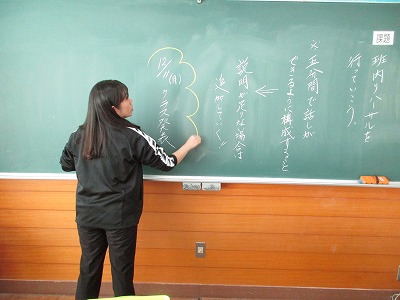 課題
班内リハーサルを
行っていこう。
※五分間で話しが
できるように構成すること
説明が足りない場合は
追加していく。
12/11(月)
クラス発表